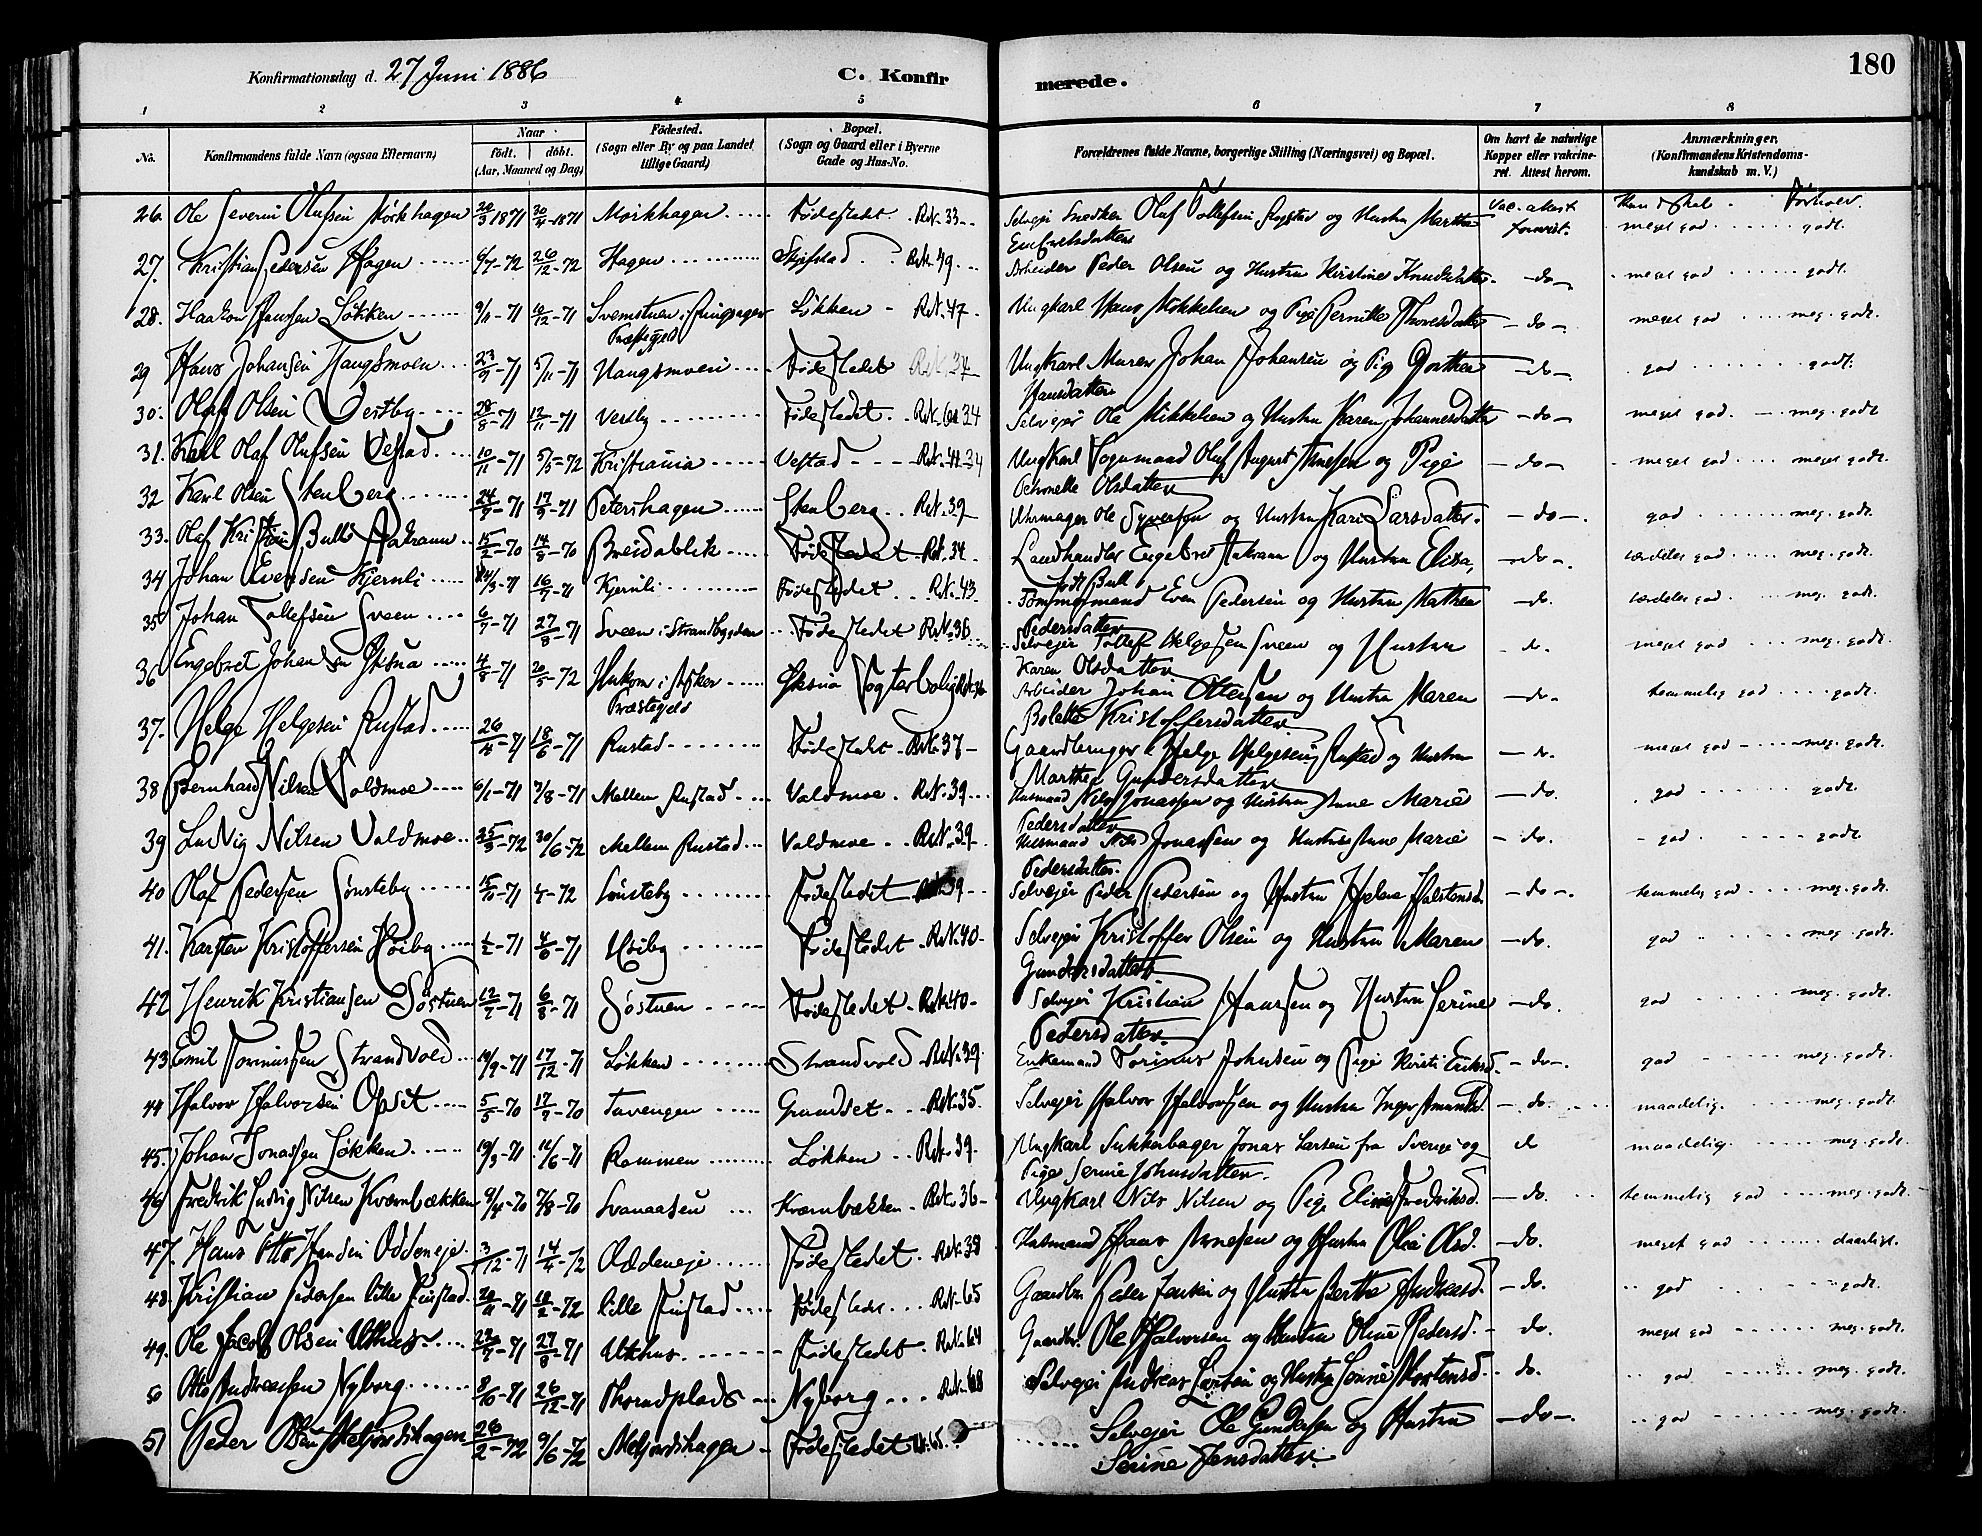 Konfirmationsdag d. 27 Juni 1886 C. Konfirmerede. 180
1 2 3 4 5 6 7 8
No. Konfirmandens fulde Navn (ogsaa Efternavn) Naar født. døbt. (Aar, Maaned og Dag) Fødested. (Sogn eller By og paa Landet tillige Gaard) Bopæl. (Sogn og Gaard eller i Byerne Gade og Hus-No. Forældrenes fulde Navne, borgerlige Stilling (Næringsvei) og Bopæl. Om havt de naturlige Kopper eller vakcineret. Attest herom. Anmærkninger. (Konfirmandens Kristendomskundskab m. V.)
26. Ole Severin Olufsen Mørkhagen 20/3 1871 30/4-1871 Mørkhagen Fødestedet. Rk. 33 Selveier Snedker Oluf Tollefsen og Hustru Marthe meget god godt.
27. Kristian Pedersen Hagen 6/7-72 26/12-72 Hagen Rk. 49. Arbeider Peder Olsen og Hustru Kirstine Knudsdatter - do - meget god godt.
28. Haakon Hansen Løkken 9/11-71 10/12-71 Svemstuen i Ringsager Præstegjeld Løkken Rk. 47 Ungkarl Hans Mikkelsen og Pige Pernille Thoresdatter - do - meget god meg. godt.
29 Hans Johansen Haugsmoen 23/9-71 5/11-71 Haugsmoen Fødestedet Rk. 37 Ungkarl Murer Johan Johansen og Pige Dorthea Hansdatter - do - god godt.
30. Olaf Olsen Vestby 28/8-71 12/11-71 Vestby Fødestedet. Rk. 34 Selveier Ole Mikkelsen og Hustru Karen Johannesdatter - do - meget god. meg. godt
31. Karl Olaf Olufsen Vestad. 10/11-71 5/5-72 Kristiania Vestad Rk. 34 Ungkarl Oluf August og Pige Petronelle Olsdatter - do - meget god meget godt.
32 Karl Olsen Stenberg 24/7-71 17/9-71 Petershagen Stenberg Rk. 39 Uhrmager Ole Syversen og Hustru Kari Larsdatter. - do - god meg. godt.
33. Olaf Kristian Bull Aakrann 15/2-70 14/8-70 Breidablik Fødestedet Rk. 34. Landhandler Engebret Aakrann og Hustru Elisa, født Bull - do - særdeles god meg. godt.
34 Johan Evensen Kjernli 24/3-71 16/7-71 Kjernli Fødestedet Rk. 43 Tømmermand Even Pedersen og Hustru Mathea Pedersdatter - do. særdeles god meg. godt.
35 Johan Tollefsen Sveen 6/7-71 27/8-71 Sveen i Strandbygden Fødestedet Rk. 36. Selveier Tollef Helgesen Sveen og Hustru Karen Olsdatter - do. meget god meg. godt.
36 Engebret Johansen Øksna 4/8-71 20/5-72 i Asker Præstegjeld Øksna Vogterbolig Rk. 36 Arbeider Johan Ottersen og Hustru Maren Bolette Kristoffersdatter - do - temmelig god godt.
37. Helge Helgesen Rustad. 26/4-71 18/6-71 Rustad Fødestedet Rk. 37 Gaardbruger Helge Helgesen Rustad og Hustru Marthea Gundersdatter - do. meget god meg. godt.
38 Bernhard Nilsen Voldmoe 6/1-71 3/8-71 Mellem Rustad Voldmoe Rk. 39 Husmand Nils Jonassen og Hustru Anne Marie Pedersdatter - do. god godt.
39 Ludvig Nilsen Voldmoe 25/3-72 30/6-72 Mellem Rustad Voldmoe Rk. 39 Husmand Nils Jonassen og Hustru Anne Marie Pedersdatter. - do. god godt
40 Olaf Pedersen Sønsteby 15/10-71 -72 Sønsteby Fødestedet Rk. 39 Selveier Peder Pedersen og Hustru Helene Halstensd. - do - temmelig god meg. godt.
41. Karsten Kristoffersen Høiby 1/2-71 4/6-71 Høiby Fødestedet Rk. 40 Selveier Kristoffer Olsen og Hustru Maren Gundersdatter - do. god meg. godt.
42 Henrik Kristiansen Søstuen 12/7-71 6/8-71 Søstuen Fødestedet Rk. 40 Selveier Kristian Hansen og Hustru Serine Pedersdatter. - do. god meg. godt.
43 Emil Strandvold 19/9-71 17/12-71 Løkken Strandvold Rk. 39 Enkemand Johnsen og Pige Kirsti Eriksd. - do - god meg. godt.
44 Halvor Halvorsen Opset 5/5-70 17/7-70 Tavengen Grundset Rk. 35. Selveier Halvor Halvorsen og Hustru Inger - do. maadelig. meg. godt.
45. Johan Jonassen Løkken 19/3-71 11/6-71 Rammen Løkken Rk. 39 Ungkarl Sukkerbager Jonas Larsen fra Sverige og Pige Serine Johnsdatter. do maadelig meg. godt.
46 Fredrik Ludvig Nilsen Kværnbækken 9/4-70 7/8-70 Svanaasen Kværnbækken Rk. 36 Ungkarl Nils Nilsen og Pige Eline Fredriksd. - do. temmelig god meg. godt.
47. Hans Otto Hansen Oddeneje. 3/12-71 14/4-72 Oddeneje Fødestedet. Rk. 38 Husmand Hans Arnesen og Hustru Olea Olsd. - do. meget god daarligt.
48. Kristian Pedersen lille Finstad. 20/11-71 18/2-72 lille Finstad Fødestedet Rk. 65 Gaardbr. Peder Jensen og Hustru Berthe Andreasd. - do. god godt.
49. Ole Jacob Olsen Uthus 23/7-71 27/8-71 Uthus Fødestedet Rk. 64 Gaardbr. Ole Halvorsen og Hustru Oline Pedersd. - do. meget god meg. godt.
50 Otto Andreassen Nyborg 8/10-71 26/12-71 Nyborg Rk. 68 Selveier Andreas Larsen og Hustru Mortensd. - do. god meg. godt.
51 Peder Olsen Mefjordshagen 26/2-72 9/6-72 Mefjordshagen Fødestedet Rk. 65. Selveier Ole Gundersen og Hustru Serine Jensdatter. - do - god meg. godt.